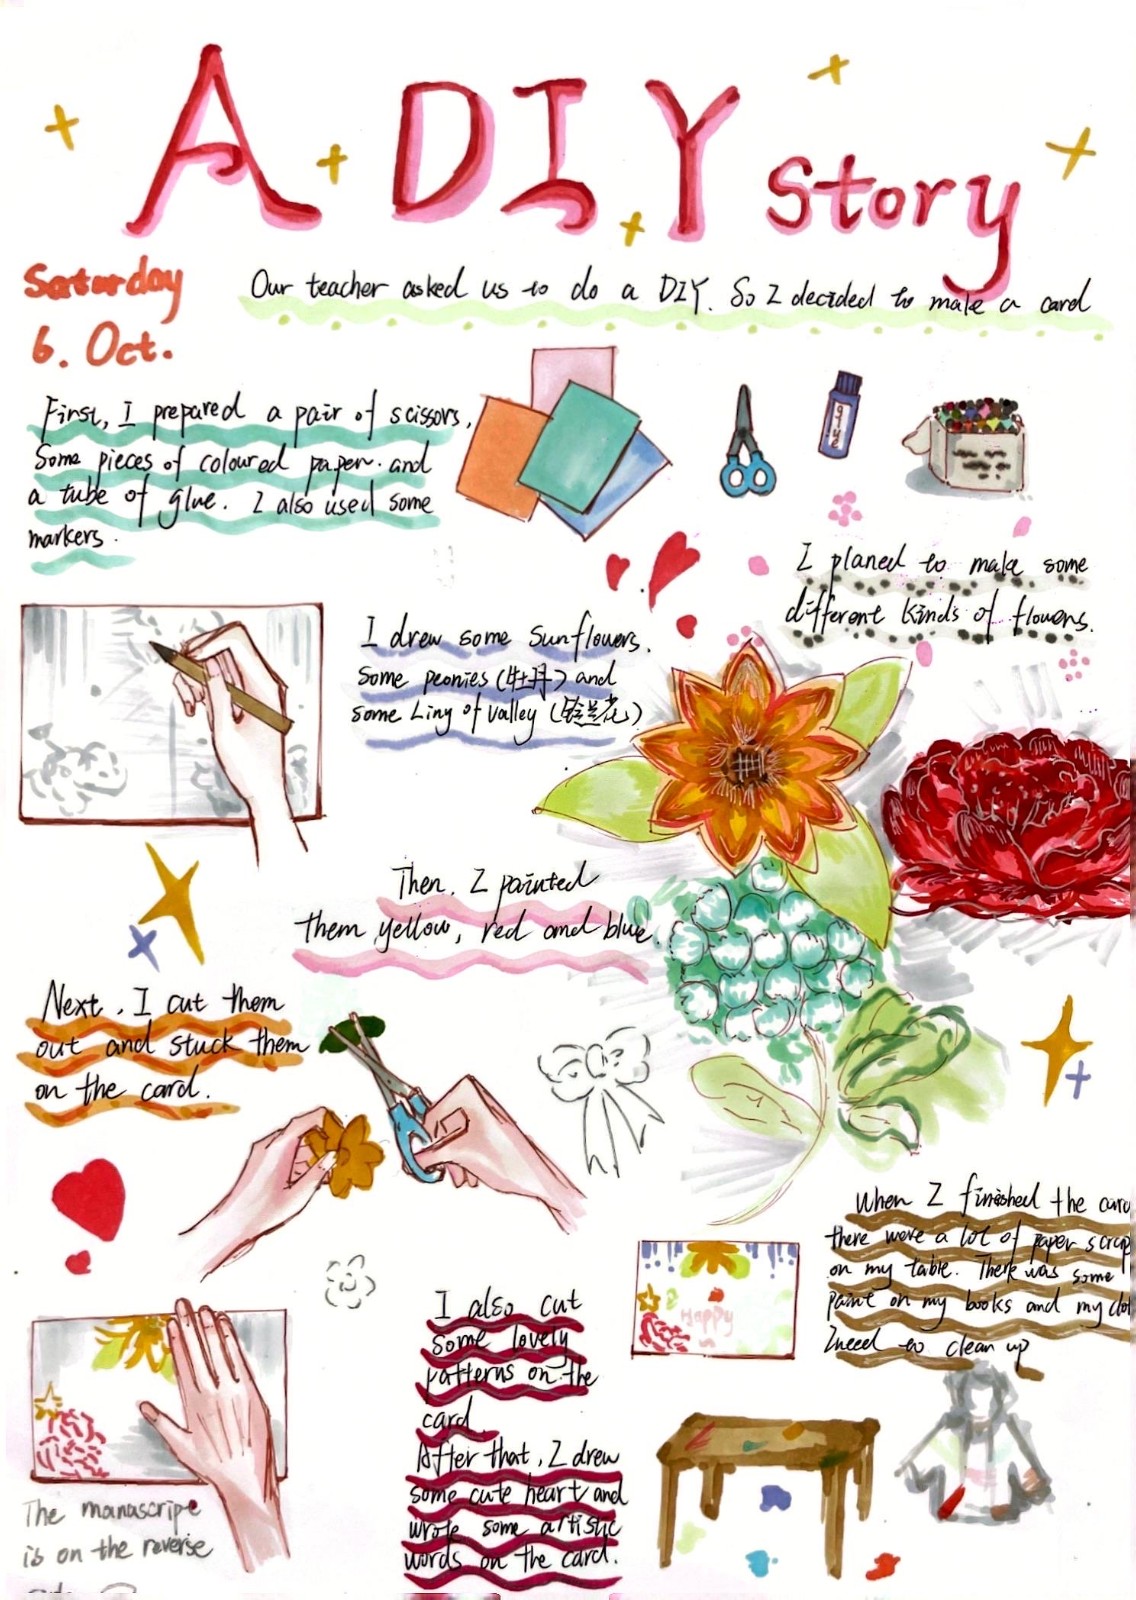 A DIY story
Saturday
6. Oct.
Our teacher asked us to do a DIY. So I decided to make a card
First, I prepared a pair of scissors,
Some pieces of coloured paper. and
a tube of glue. I also used some
markers.
glue
I planed to make some
different kinds of flowers.
I drew some sunflowers.
Some peonies (牡丹) and
some Liny of valley (铃兰花)
Then, I painted
them yellow, red and blue.
Next, I cut them
out and stuck them
on the card.
When I finished the card
there were a lot of paper scrap
on my table. There was some
paint on my books and my clot
I need to clean up
Happy
I also cut
some lovely
patterns on the
card.
After that, I drew
some cute heart and
wrote some artistic
words on the card.
The manascripe
is on the reverse